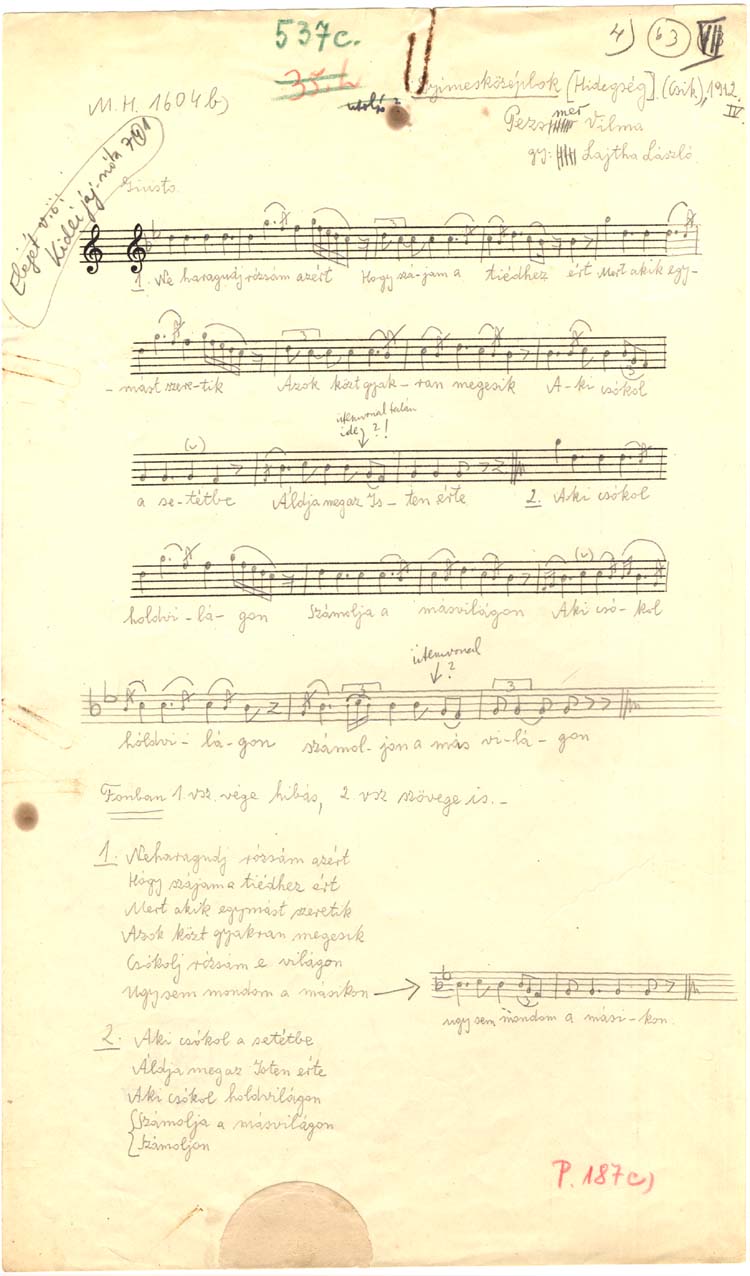 537c.
4) 63 VII
M.H. 1604b)
utolsó?
Gyimesközéplok [Hidegség] (Csik), 1912. IV.
Pezs mer Vilma
gy: Lajtha László
Elejét v.ö:
Kidei jaj-nóta
Giusto
1. Ne haragudj rózsám azért Hogy szá-jam a tiédhez ért Mert akik egy-
-mást szere-tik Azok közt gyak-ran megesik A-ki csókol
ütemvonal talán
ide ?!
a se-tétbe Áldja meg az Is-ten érte 2. Aki csókol
holdvi-lá-gon Számolja a másvilágon Aki csó-kol
ütemvonal
?
hóldvi-lá-gon számol-jon a más vi-lá-gon
Fonban 1. vsz. vége hibás, 2. vsz szövege is.-
1. Neharagudj rózsám azért
Hogy szájam a tiédhez ért
Mert akik egymást szeretik
Azok közt gyakran megesik
Csókolj rózsám e világon
Ugy sem mondom a másikon
ugy sem mondom a mási-kon.
2. Aki csókol a setétbe
Áldja meg az Isten érte
Aki csókol holdvilágon
Számolja a másvilágon
Számoljon
P. 187c)